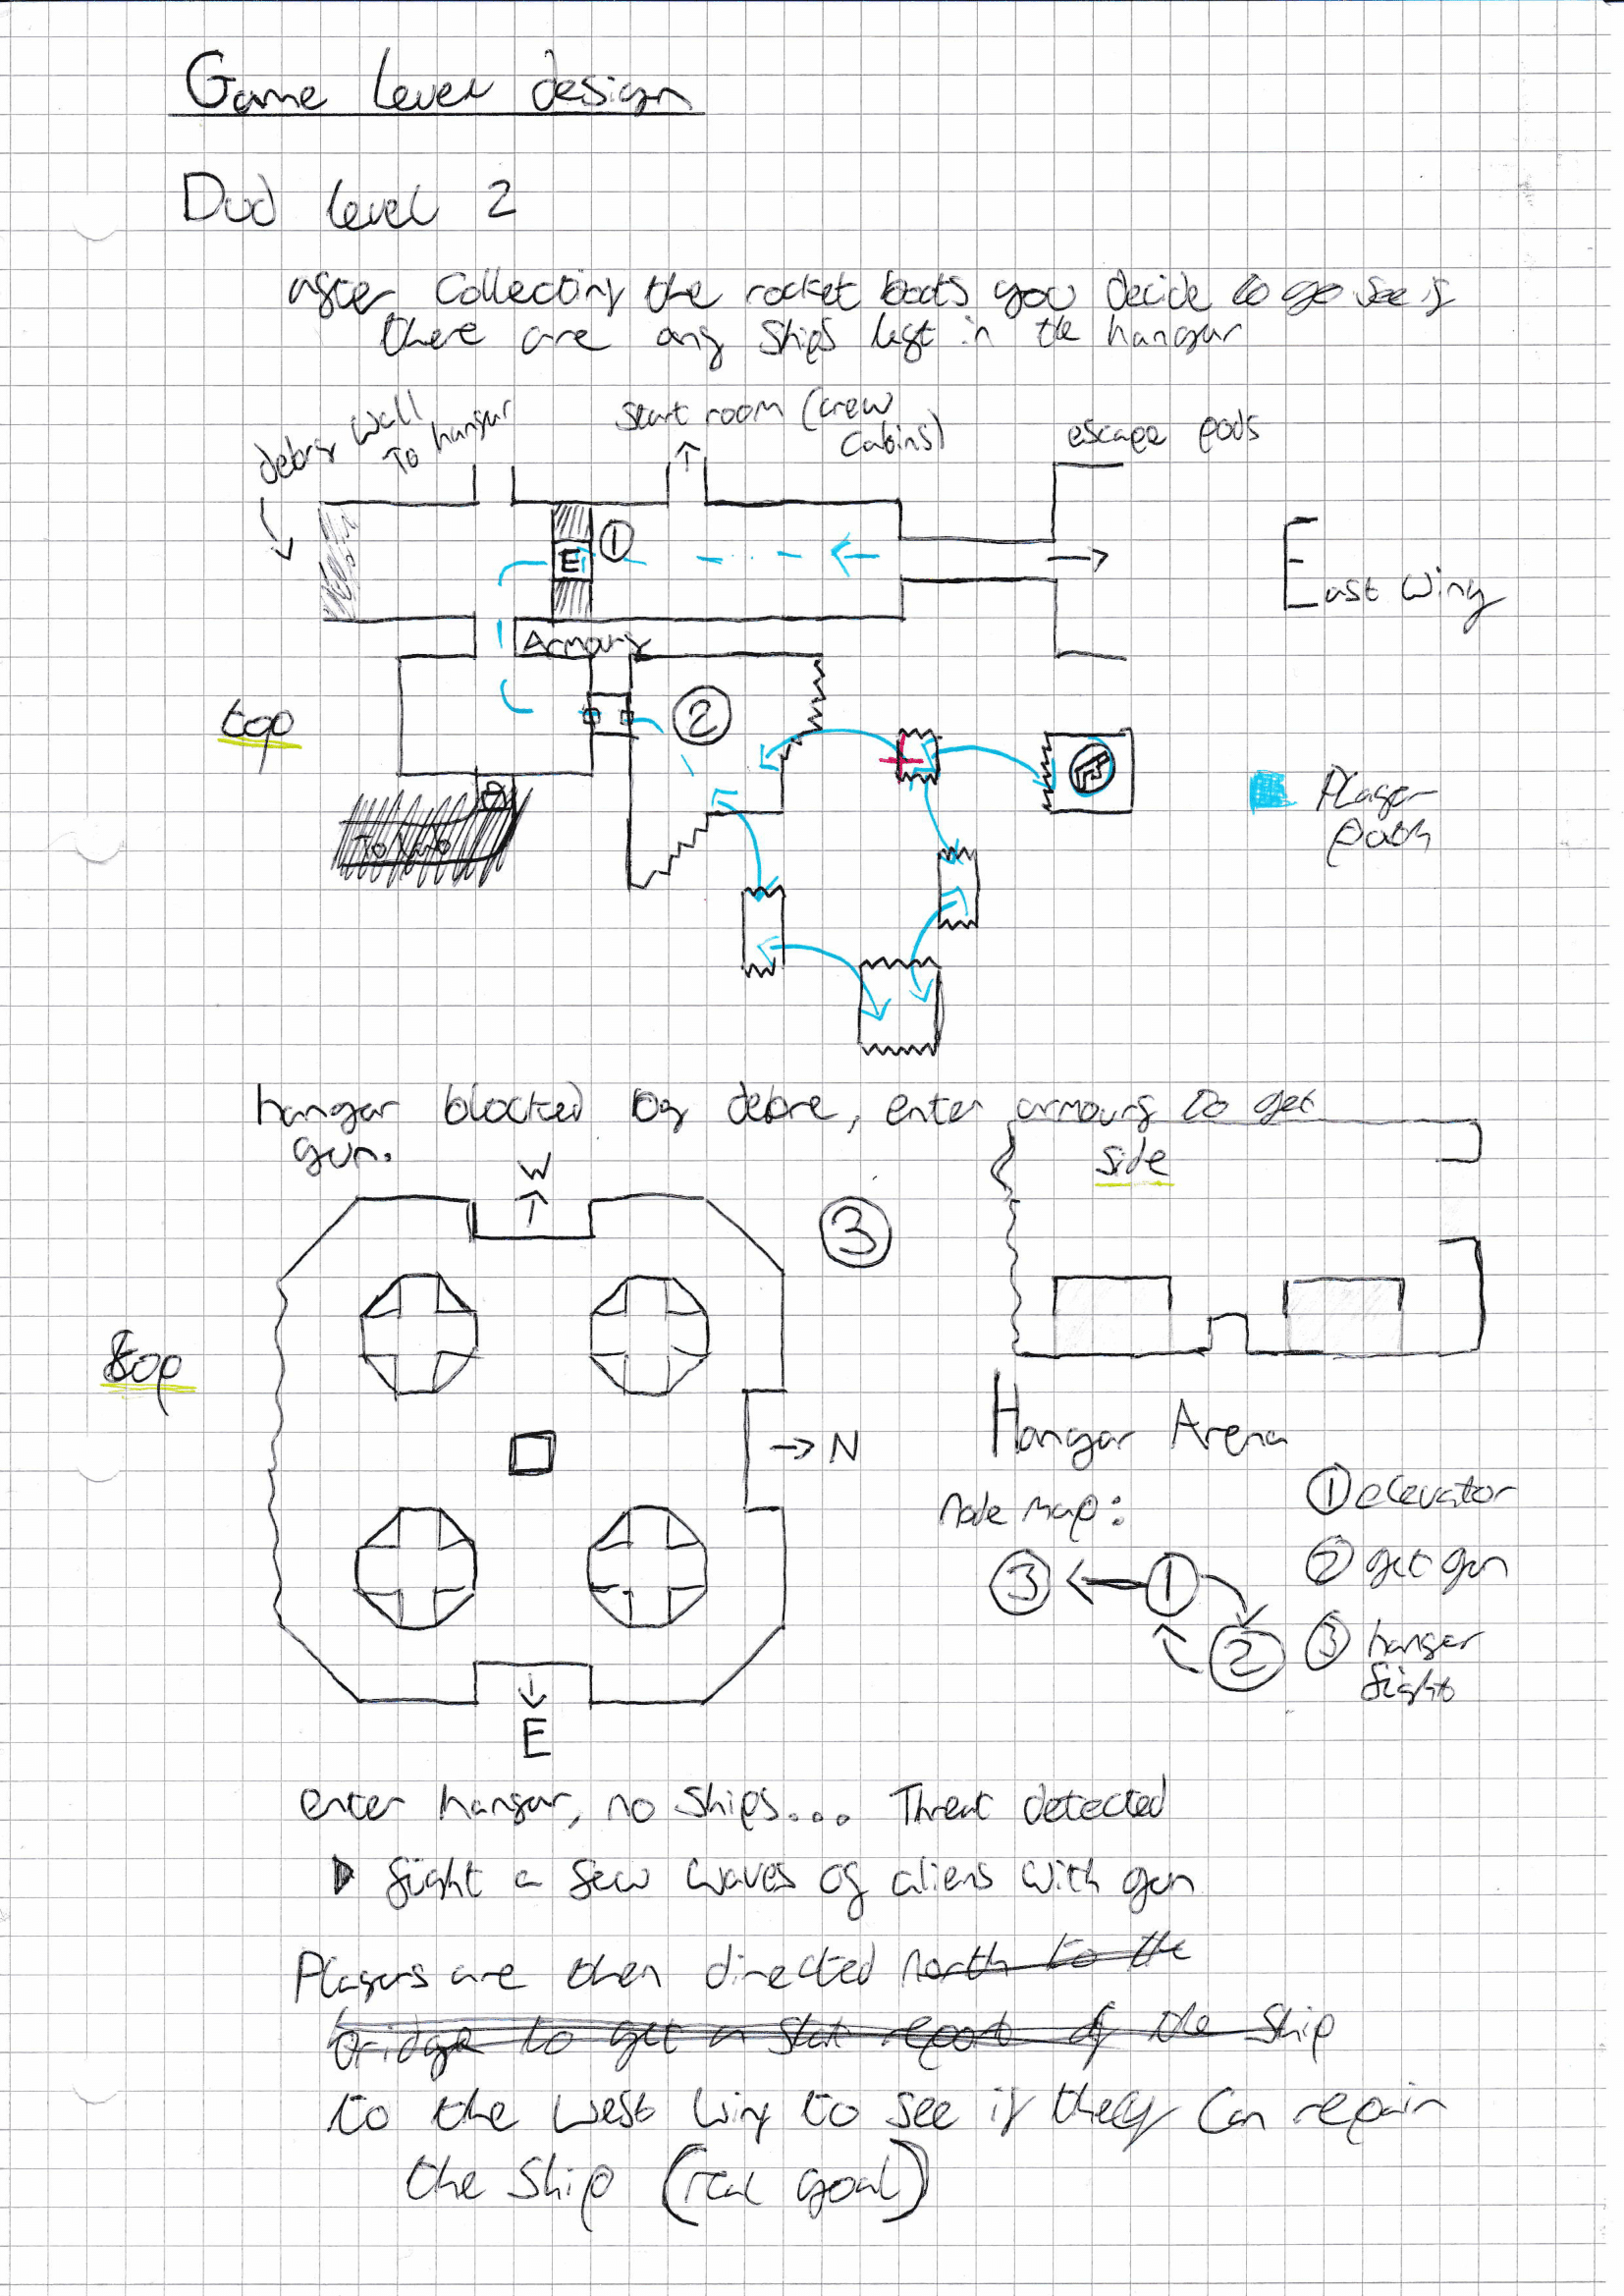 Game level design
Dud level 2
after collecting the rocket boots you decide to go see if
there are any ships left in the hangar
debry wall
To hangar
start room (crew
cabins)
escape pods
1
E
East Wing
Armoury
top
2
Player
path
hangar blocked by debre, enter armoury to get
gun.
side
W
3
top
N
Hangar Arena
node map:
1 elevator
2 get gun
3 hanger
fight
3
1
2
E
enter hangar, no ships... Threat detected
fight a few waves of aliens with gun
Players are then directed north to the
bridge to get a stat report of the ship
to the west wing to see if they can repair
the ship (real goal)